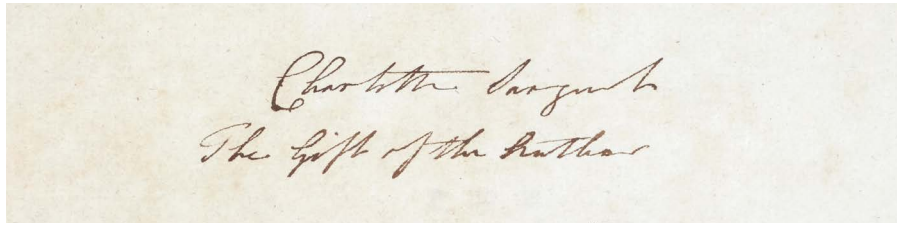 Charlotte Sargent
The Gift of the Author